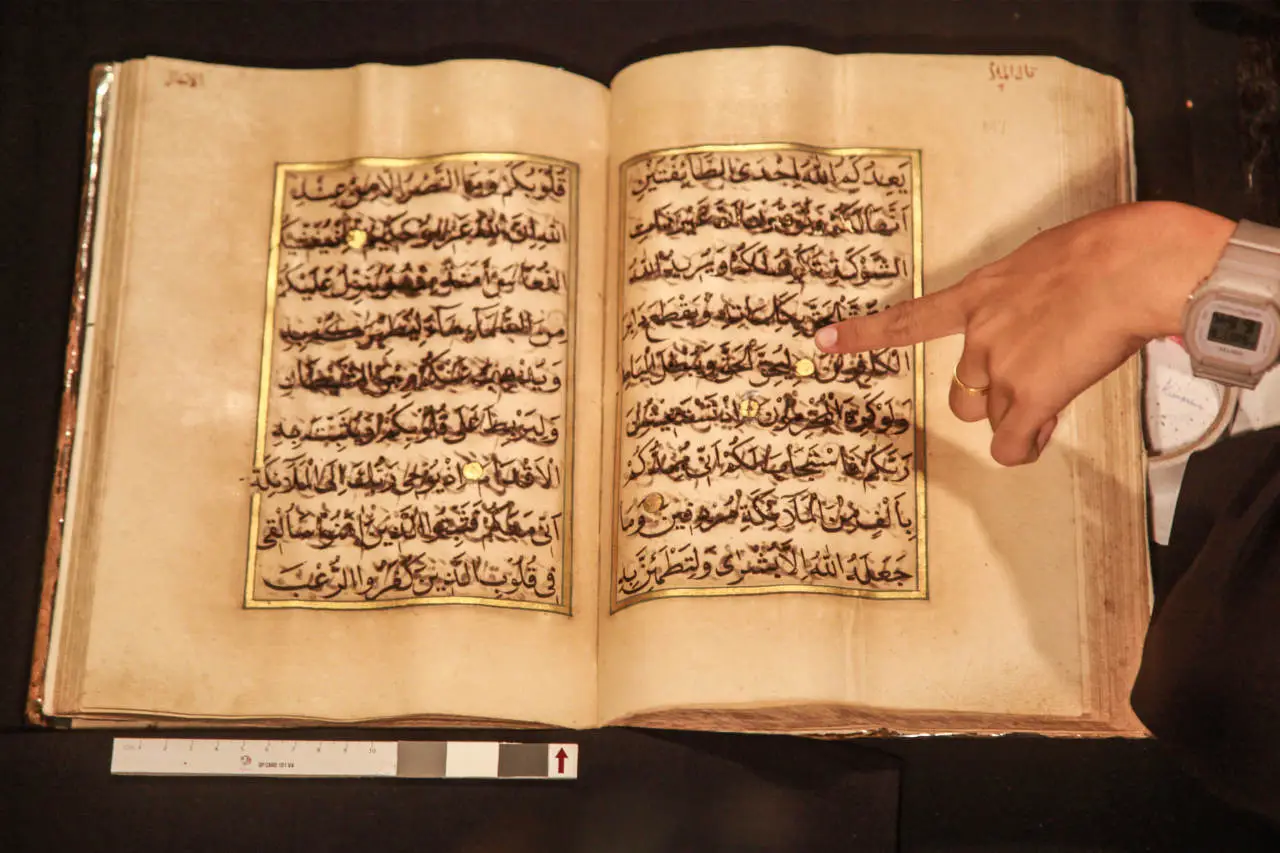 قال الملأ
يَعِدُكُمُ اللهُ اِحْدَى الطَّائِفَتَيْنِ
اَنَّهَا لَكُمْ وَتَوَدُّونَ اَنَّ غَيْرَ ذَاتِ
الشَّوْكَةِ تَكُونُ لَكُمْ وَيُرِيدُ اللهُ
الْحَقَّ بِكَلِمَاتِهِ وَيَقْطَعَ دَابِرَ
الْكَافِرِينَ لِيُحِقَّ الْحَقَّ وَيُبْطِلَ الْبَاطِلَ
وَلَوْ كَرِهَ الْمُجْرِمُونَ اِذْ تَسْتَغِيثُونَ
رَبَّكُمْ فَاسْتَجَابَ لَكُمْ اَنِّي مُمِدُّكُمْ
بِاَلْفٍ مِنَ الْمَلَائِكَةِ مُرْدِفِينَ وَمَا
جَعَلَهُ اللهُ اِلَّا بُشْرَى وَلِتَطْمَئِنَّ بِهِ
الانفال
قُلُوبُكُمْ وَمَا النَّصْرُ اِلَّا مِنْ عِنْدِ
اللهِ اِنَّ اللهَ عَزِيزٌ حَكِيمٌ اِذْ
النُّعَاسَ اَمَنَةً مِنْهُ وَيُنَزِّلُ عَلَيْكُمْ
مِنَ السَّمَاءِ مَاءً لِيُطَهِّرَكُمْ بِهِ
وَيُذْهِبَ عَنْكُمْ رِجْزَ الشَّيْطَانِ
وَلِيَرْبِطَ عَلَى قُلُوبِكُمْ وَيُثَبِّتَ بِهِ
الْاَقْدَامَ اِذْ يُوحِي رَبُّكَ اِلَى الْمَلَائِكَةِ
اَنِّي مَعَكُمْ فَثَبِّتُوا الَّذِينَ اٰمَنُوا سَاُلْقِي
فِي قُلُوبِ الَّذِينَ كَفَرُوا الرُّعْبَ